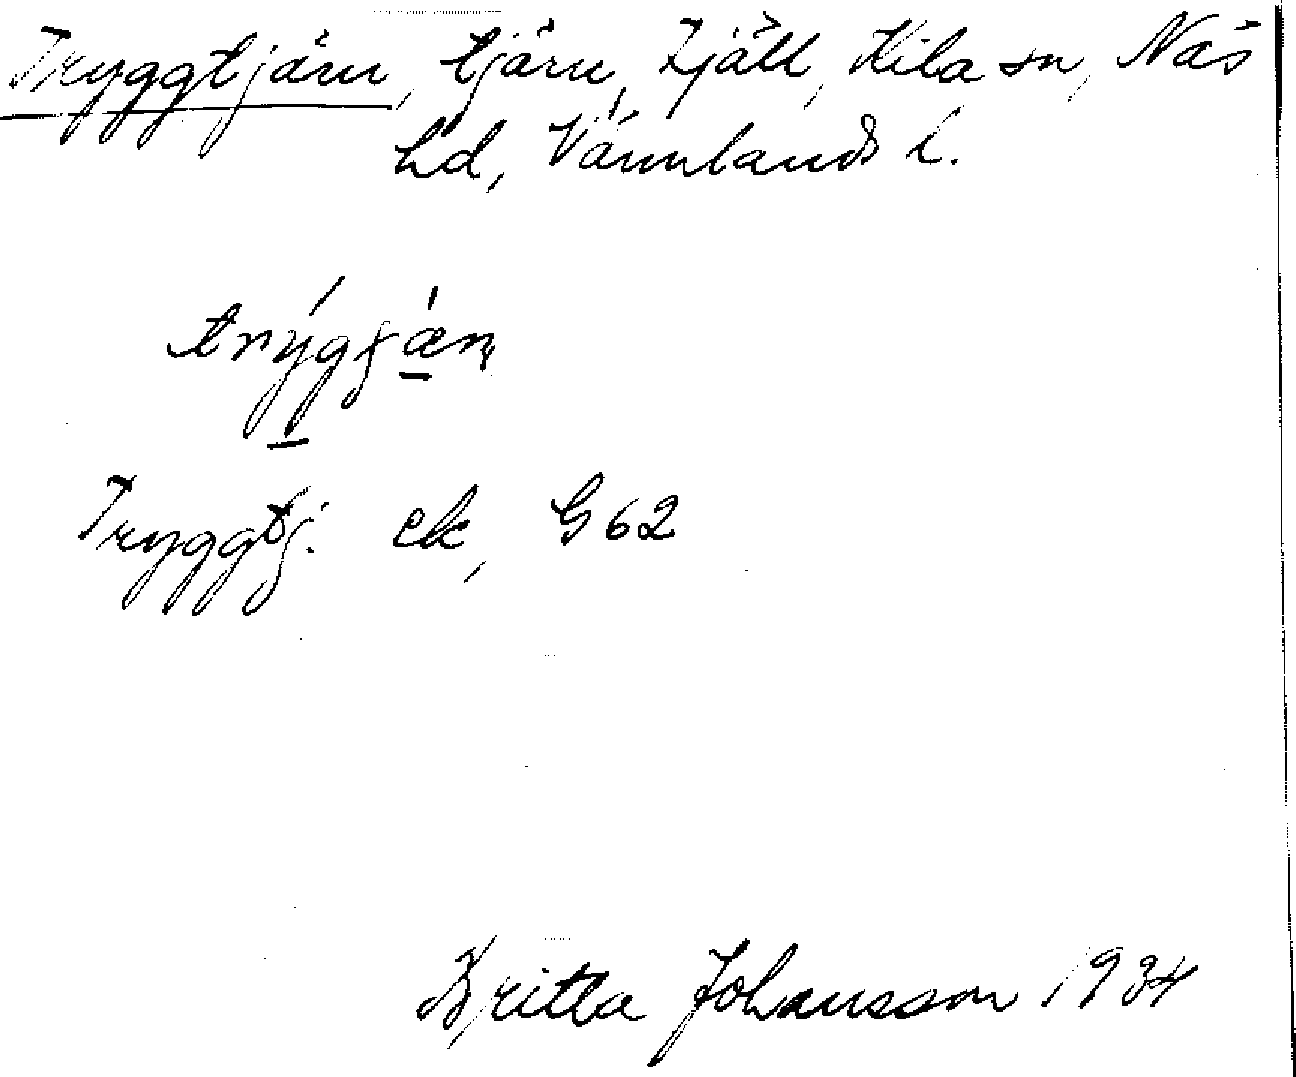 Tryggtjärn, tjärn, Tjäll, Kila sn, Näs
hd, Värmlands l.
trýgjæ̠n
Tryggtj. ek, G 62
Britta Johansson 1934